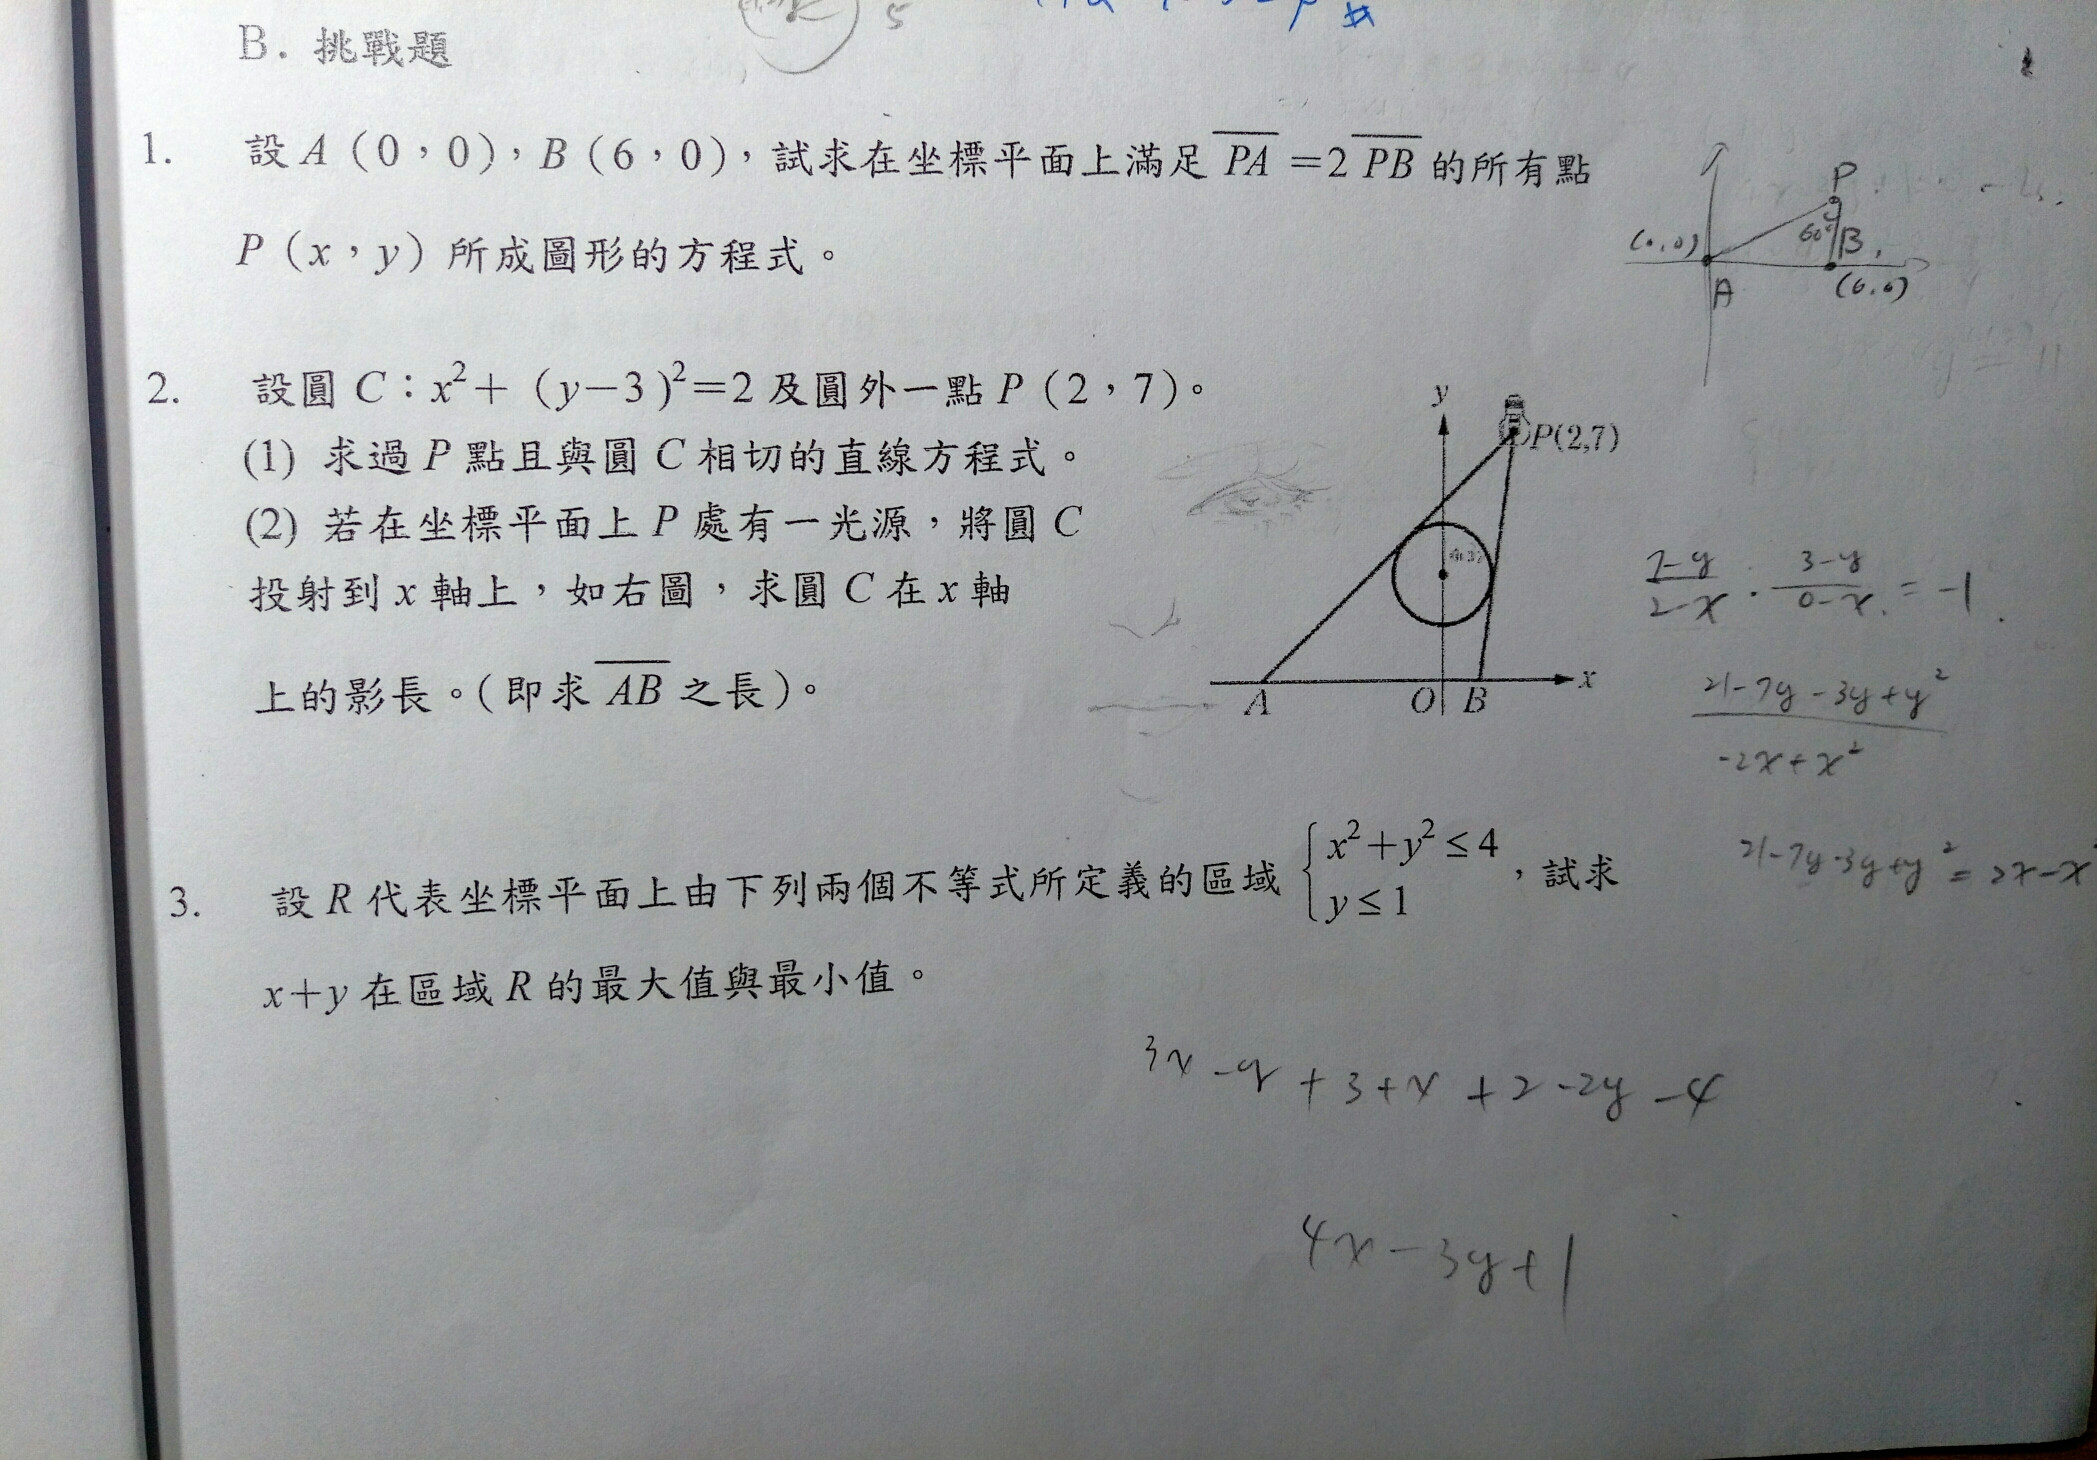 B. 挑戰題
5
1. 設 A（0，0），B（6，0），試求在坐標平面上滿足 \overline{PA} =2 \overline{PB} 的所有點
P（x，y）所成圖形的方程式。
P
60°
(0,0)
B
A
(6,0)
2. 設圓 C：x²+（y−3）²=2 及圓外一點 P（2，7）。
(1) 求過 P 點且與圓 C 相切的直線方程式。
(2) 若在坐標平面上 P 處有一光源，將圓 C
投射到 x 軸上，如右圖，求圓 C 在 x 軸
上的影長。（即求 \overline{AB} 之長）。
y
P(2,7)
x
A O B
\frac{7-y}{2-x} · \frac{3-y}{0-x} = -1
\frac{21-7y-3y+y²}{-2x+x²}
21-7y-3y+y² = 2x-x²
3. 設 R 代表坐標平面上由下列兩個不等式所定義的區域 { x²+y²≤4
y≤1 ，試求
x+y 在區域 R 的最大值與最小值。
3x-y+3+x+2-2y-4
4x-3y+1